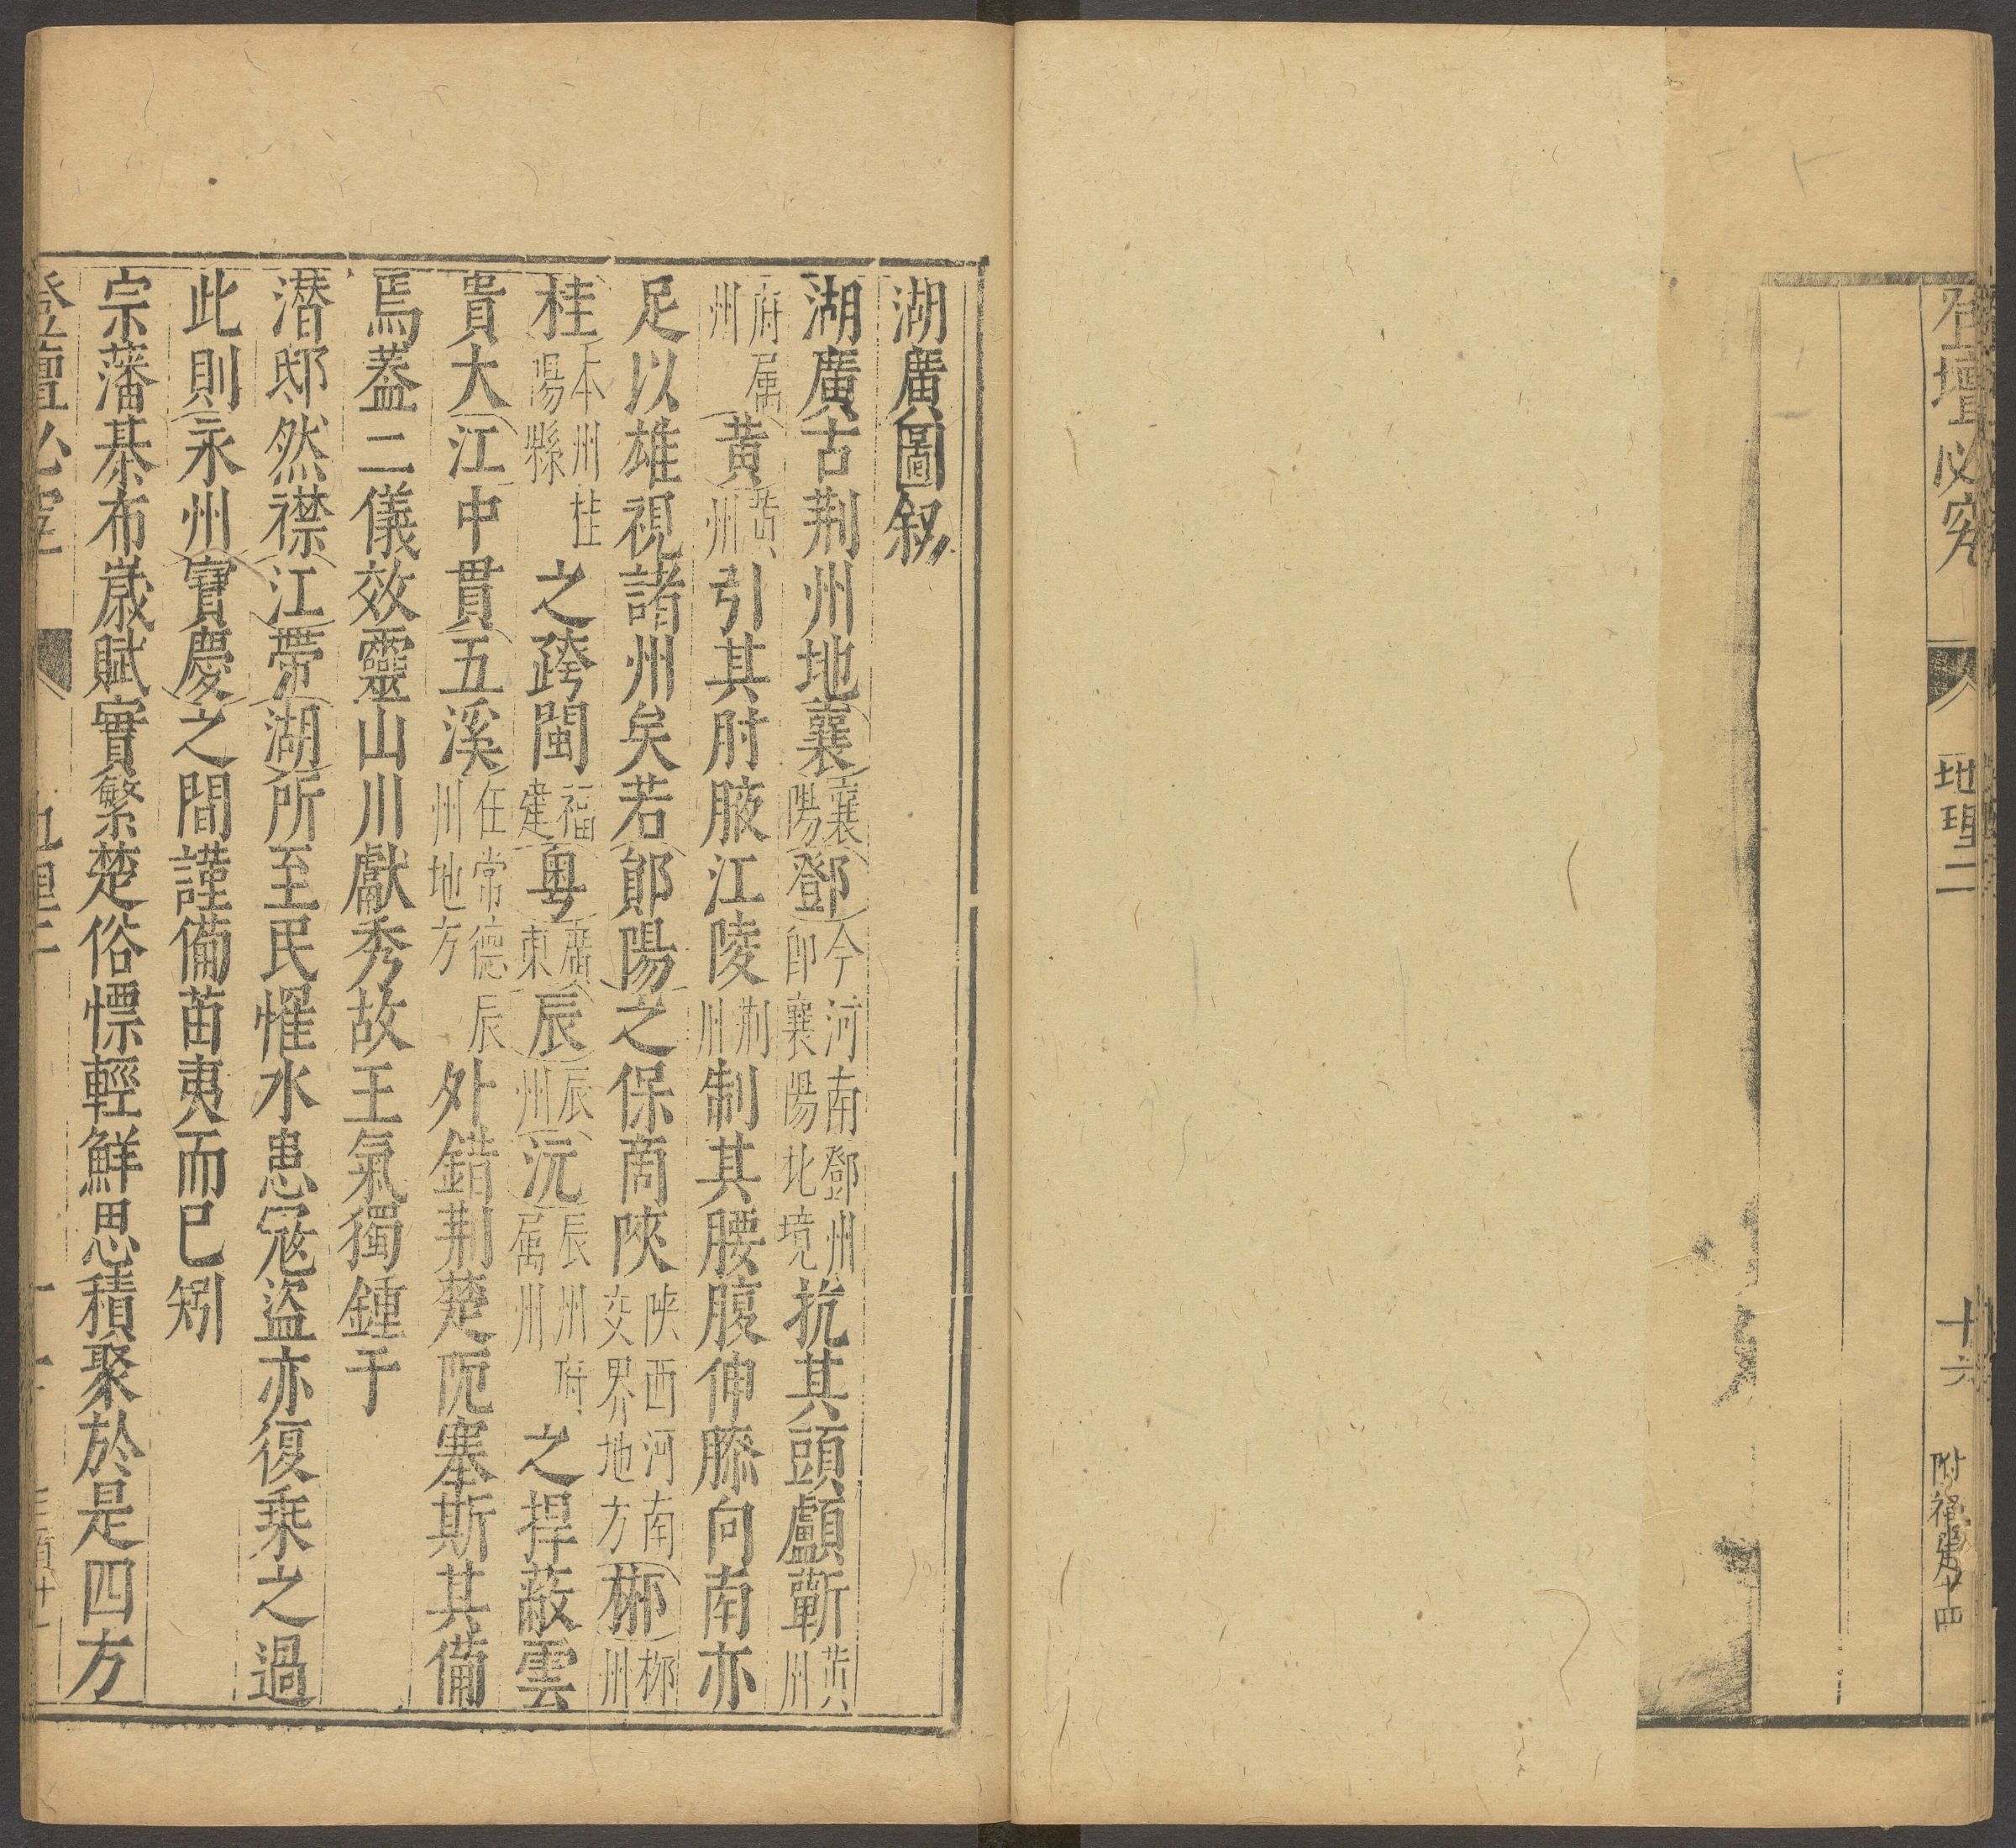 登壇必究 地理二 十六
湖廣圖叙
湖廣古荆州地襄襄陽鄧今河南鄧州卽襄陽北境抗其頭顱蘄黄州
府属州黄黄州引其肘腋江陵荆州制其腰腹伸膝向南亦
足以雄視諸州矣若鄖陽之保商陜陕西河南交界地方郴郴州
桂本州桂陽縣之跨閩福建粤廣東辰辰州沅辰州府属州之捍蔽雲
貴大江中貫五溪在常德辰州地方外錯荆楚阨塞斯其備
焉葢二儀效靈山川獻秀故王氣獨鍾于
潛邸然襟江帶湖所至民罹水患冦盜亦復乗之過
此則永州寳慶之間謹備苗夷而巳矧
宗藩棊布嵗賦實繁楚俗慓輕鮮思積聚於是四方
登壇必究 地理二